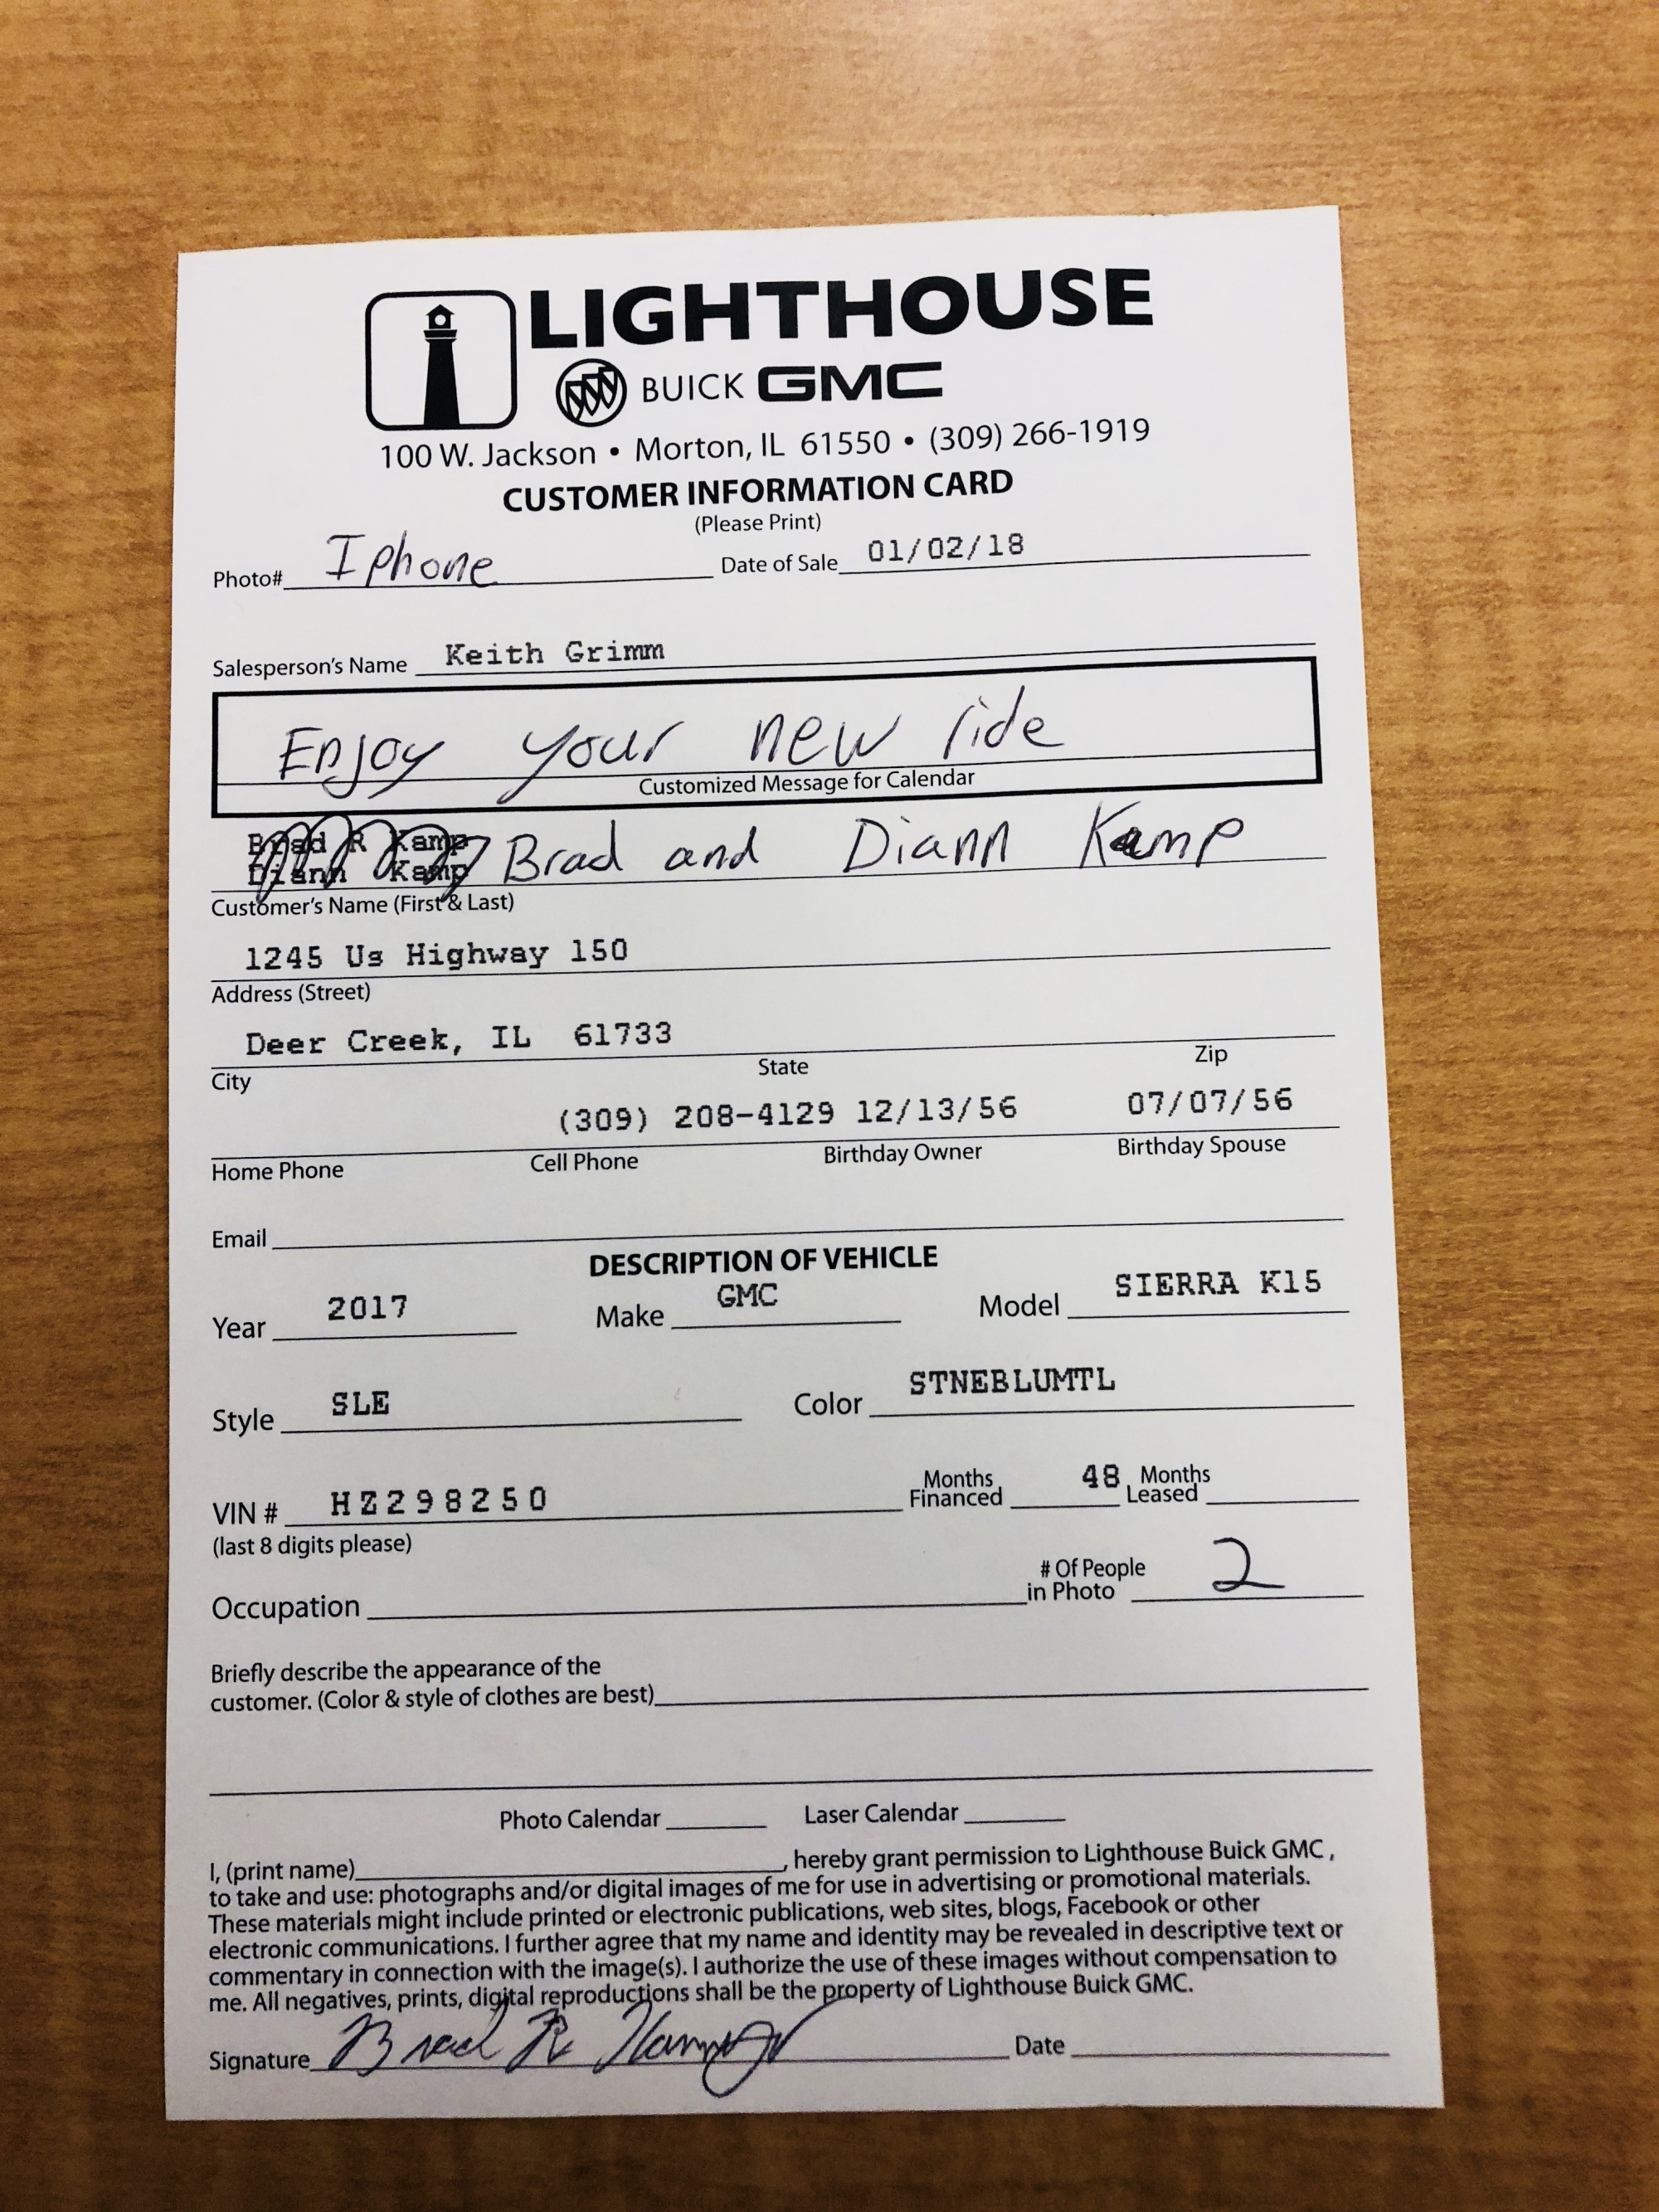 LIGHTHOUSE
BUICK GMC
100 W. Jackson • Morton, IL 61550 • (309) 266-1919
CUSTOMER INFORMATION CARD
(Please Print)
Photo# Iphone Date of Sale 01/02/18
Salesperson's Name Keith Grimm
Enjoy your new ride
Customized Message for Calendar
Brad R Kamp
Diann Kamp
Brad and Diann Kamp
Customer's Name (First & Last)
1245 Us Highway 150
Address (Street)
Deer Creek, IL 61733
City State Zip
(309) 208-4129 12/13/56 07/07/56
Home Phone Cell Phone Birthday Owner Birthday Spouse
Email
DESCRIPTION OF VEHICLE
Year 2017 Make GMC Model SIERRA K15
Style SLE Color STNEBLUMTL
VIN # HZ298250 Months Financed 48 Months Leased
(last 8 digits please)
Occupation # Of People in Photo 2
Briefly describe the appearance of the
customer. (Color & style of clothes are best)
Photo Calendar Laser Calendar
I, (print name) , hereby grant permission to Lighthouse Buick GMC ,
to take and use: photographs and/or digital images of me for use in advertising or promotional materials.
These materials might include printed or electronic publications, web sites, blogs, Facebook or other
electronic communications. I further agree that my name and identity may be revealed in descriptive text or
commentary in connection with the image(s). I authorize the use of these images without compensation to
me. All negatives, prints, digital reproductions shall be the property of Lighthouse Buick GMC.
Signature Brad R Kamp Date